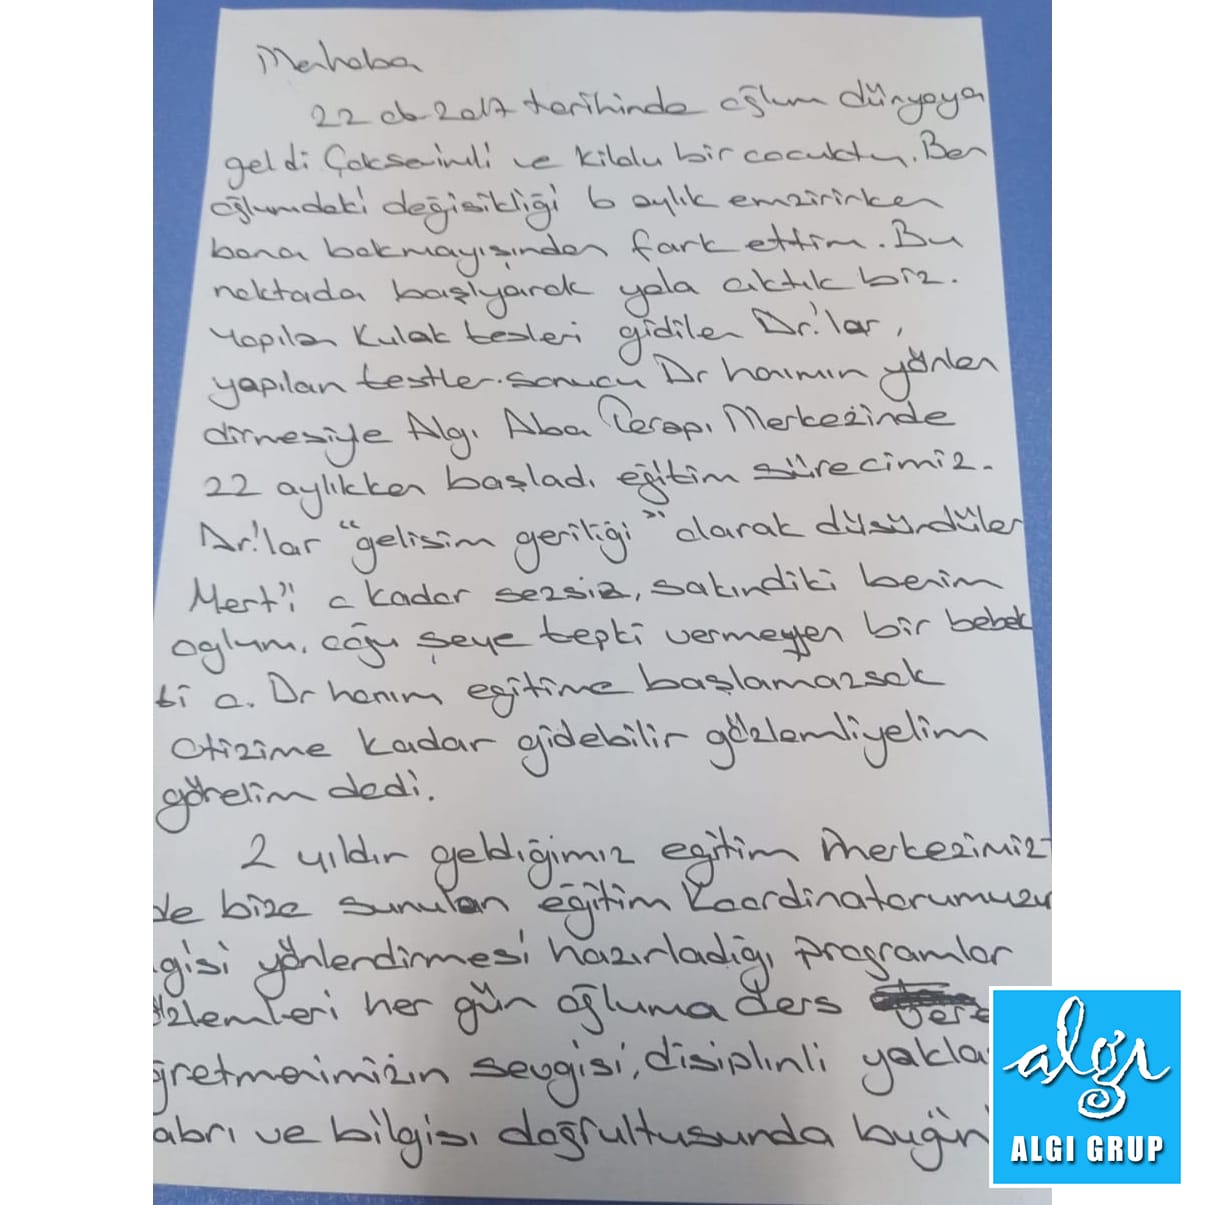 Merhaba
22 06 2017 tarihinde oğlum dünyaya
geldi Çok sevimli ve kilolu bir cocuktu. Ben
oğlumdaki değisikliği 6 aylık emzirirken
bana bakmayışından fark ettim. Bu
noktada başlyarak yola cıktık biz.
Yapılan Kulak testleri gidilen Dr.'lar,
yapılan testler. sonucu Dr hanımın yönlen
dirmesiyle Algı Aba Terapi Merkezinde
22 aylıkken başladı eğitim sürecimiz.
Dr.'lar "gelisim geriliği" olarak düşündüler
Mert'i o kadar sessiz, sakindiki benim
oglum. çoğu şeye tepki vermeyen bir bebek
ti o. Dr hanım egitime başlamazsak
Otizime kadar gidebilir gözlemliyelim
görelim dedi.
2 yıldır geldiğimiz egitim merkezimiz
de bize sunulan eğitim Koordinatorumuzu
gisi yönlendirmesi hazırladığı programlar
özlemleri her gün oğluma ders vere
ğretmenimizin sevgisi, disiplinli yakla
abrı ve bilgisi doğrultusunda bugün
algı
ALGI GRUP